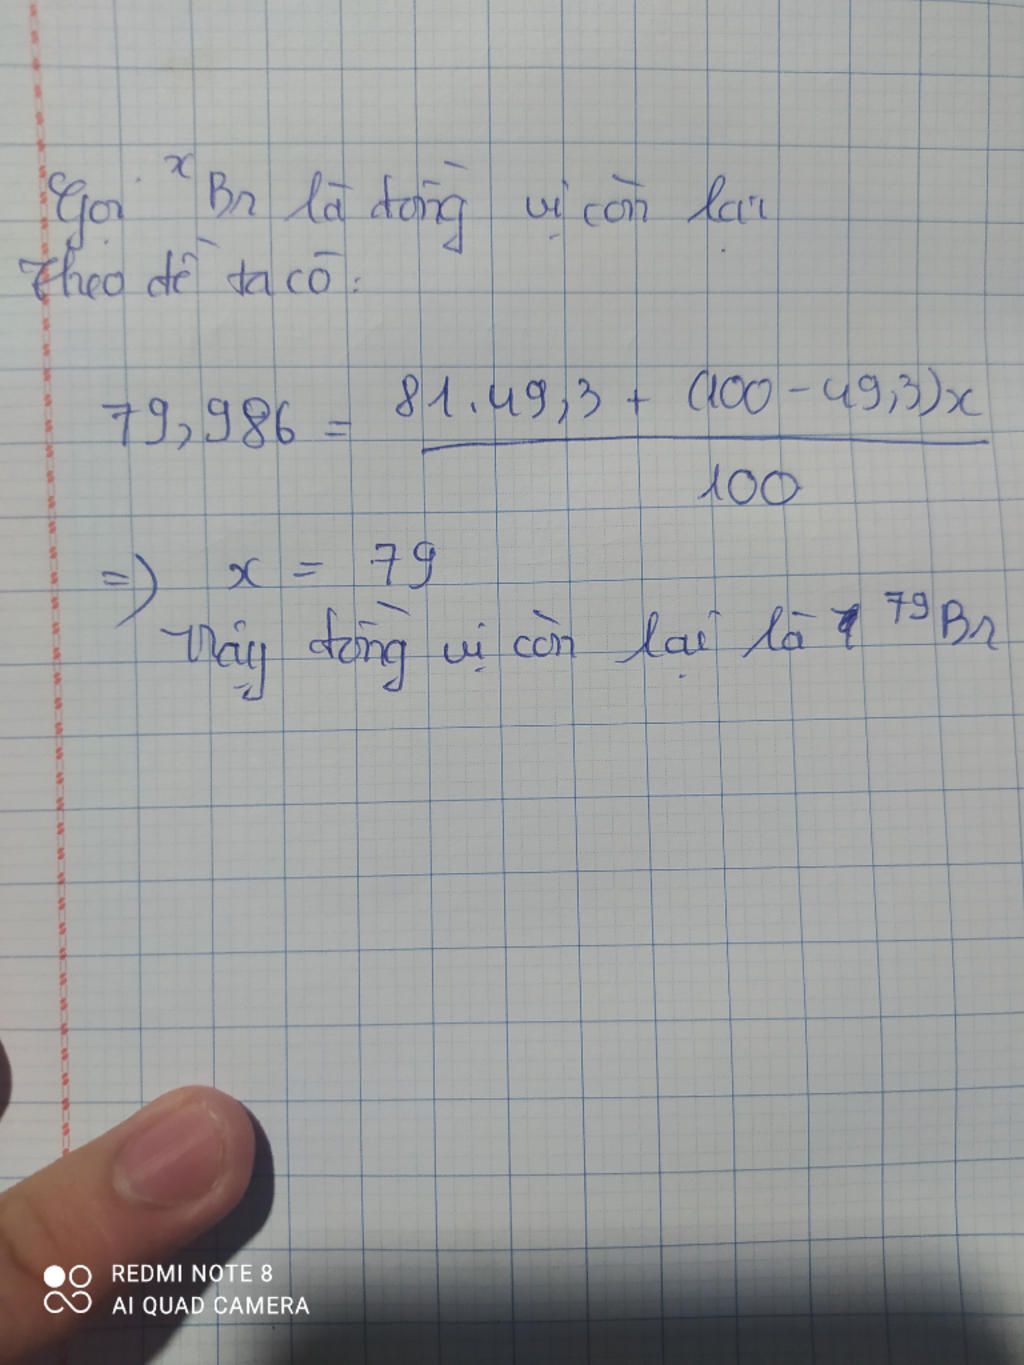 Gọi ˣBr là đồng vị còn lại
Theo đề ta có:
79,986 = (81.49,3 + (100-49,3)x) / 100
=> x = 79
Vậy đồng vị còn lại là ⁷⁹Br
REDMI NOTE 8
AI QUAD CAMERA